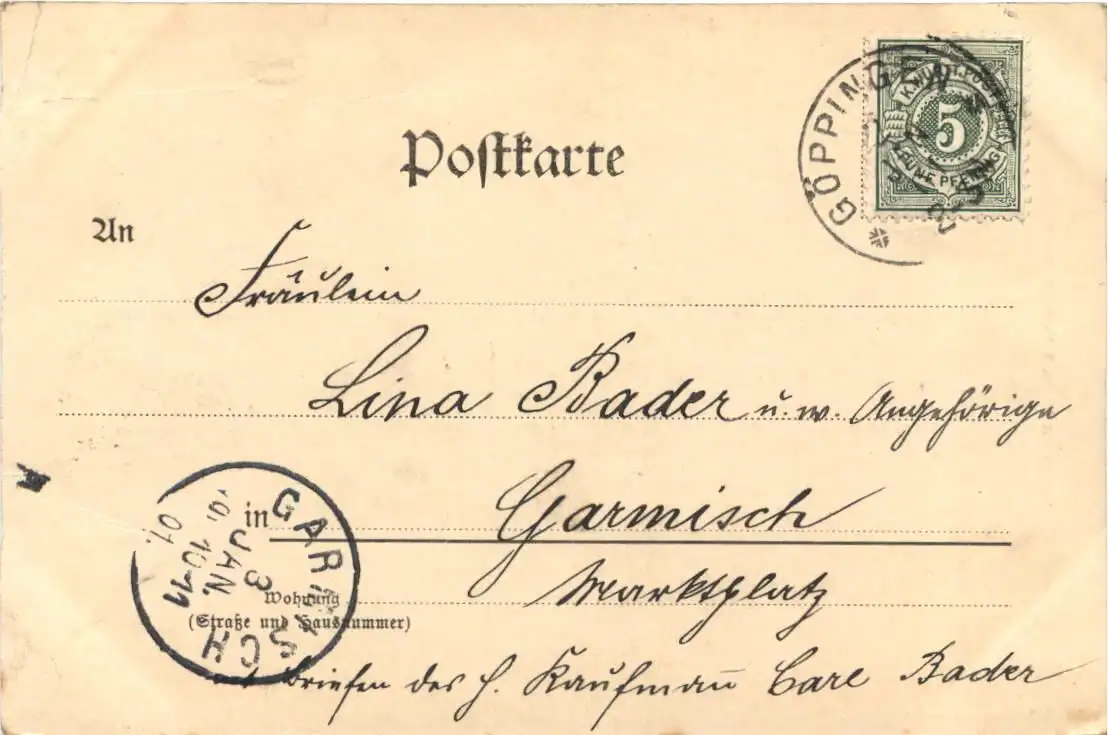 Postkarte
GÖPPINGEN
K.WÜRTT.POST
5
FÜNF PFENNIG
2-3
An
Fräulein
Lina Bader u. w. Angehörige
in Garmisch
Marktplatz
Wohnung
(Straße und Hausnummer)
Briefen des H. Kaufmann Carl Bader
GARMISCH
3 JAN. 01.
10-11